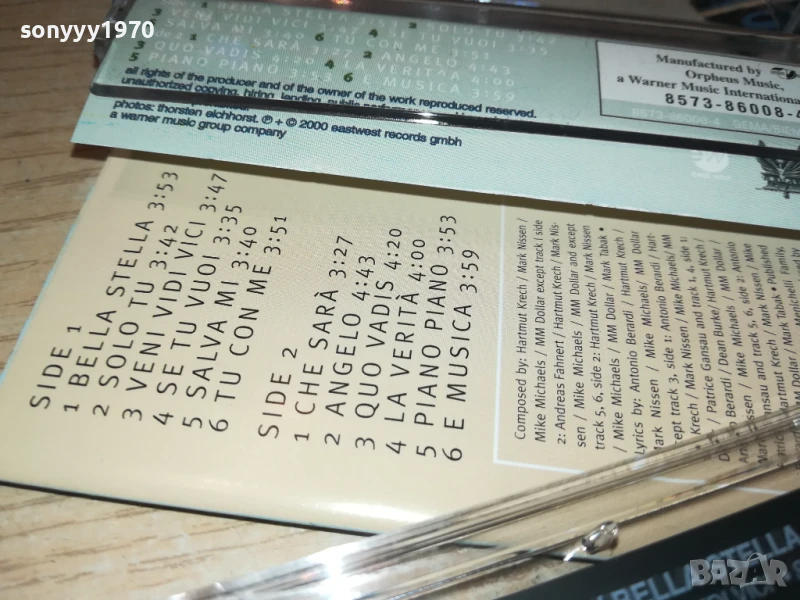 sonyyy1970
SOLO TU 3:42
SALVA MI 3:40 TU CON ME 3:51
CHE SARÀ 3:27 ANGELO 4:43
QUO VADIS 4:20 LA VERITÀ 4:00
PIANO PIANO 3:53 E MUSICA 3:59
all rights of the producer and of the owner of the work reproduced reserved.
unauthorized copying, hiring, lending, public
photos: thorsten eichhorst. ℗ + © 2000 eastwest records gmbh
a warner music group company
Manufactured by
Orpheus Music,
a Warner Music International
8573-86008-4
SIDE 1
1 BELLA STELLA 3:53
2 SOLO TU 3:42
3 VENI VIDI VICI 3:47
4 SE TU VUOI 3:35
5 SALVA MI 3:40
6 TU CON ME 3:51
SIDE 2
1 CHE SARÀ 3:27
2 ANGELO 4:43
3 QUO VADIS 4:20
4 LA VERITÀ 4:00
5 PIANO PIANO 3:53
6 E MUSICA 3:59
Composed by: Hartmut Krech / Mark Nissen /
Mike Michaels / MM Dollar except track 1 side
2: Andreas Fahnert / Hartmut Krech / Mark Nis-
sen / Mike Michaels / MM Dollar and except
track 5, 6, side 2: Hartmut Krech / Mark Nissen
/ Mike Michaels / MM Dollar / Mark Tabak •
Lyrics by: Antonio Berardi / Hartmut Krech /
Mark Nissen / Mike Michaels / MM Dollar
cept track 3, side 1: Antonio Berardi / Hart-
Krech / Mark Nissen / Mike Michaels / MM
/ Patrice Gansau and track 1, 4, side 1:
Berardi / Dean Burke / Hartmut Krech /
BELLA STELLA
BAZAR